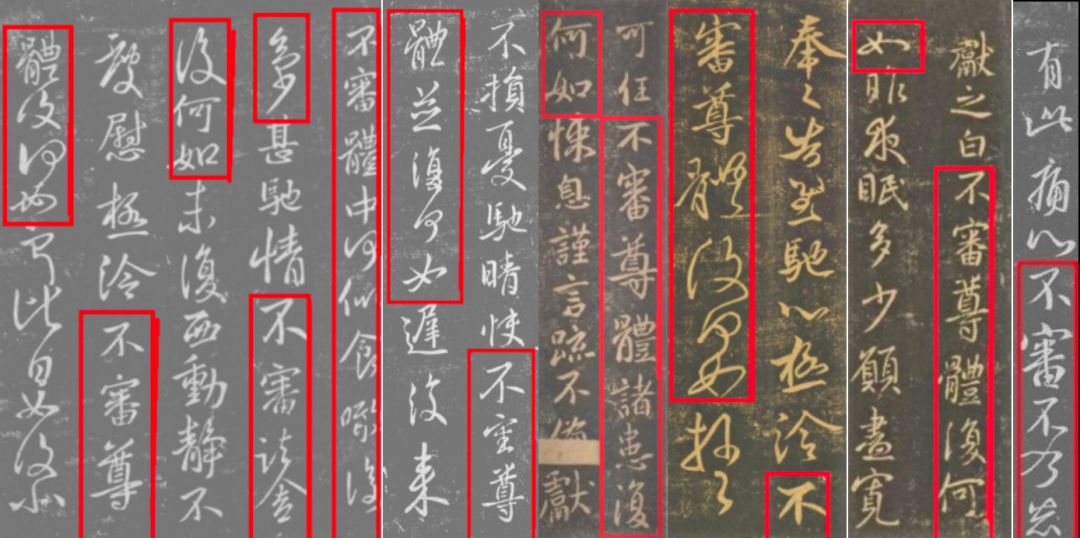 有此痛心不審不乃恙
獻之白不審尊體復何
如昨夜眠多少願盡寬
奉告至馳心極冷不
審尊體復何如
可任不審尊體諸患復
何如悚息謹言疏不備獻
不損憂馳情悚不審尊
體並復何如遲復來
不審體中何似食噉復
多少甚馳情不審諸舍
復何如未復西動靜不
慰極冷不審尊
體復何如